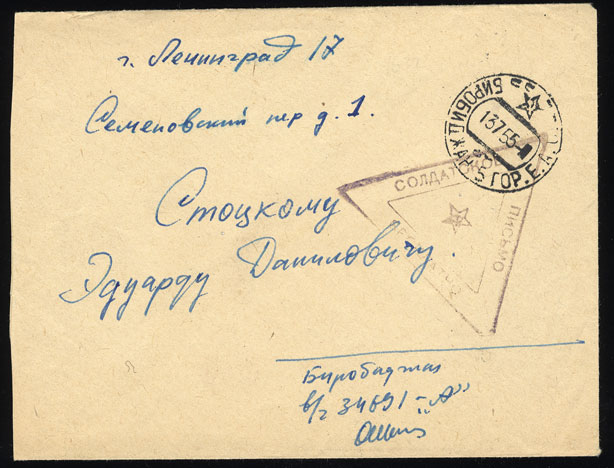 г. Ленинград 17
Семеновский пер д. 1.
Стоцкому
Эдуарду Даниловичу.
БИРОБИДЖАН 5 ГОР. Е.А.О.
13 7 55
СОЛДАТСКОЕ
ПИСЬМО
БЕСПЛАТНО
Биробиджан
в/ч 34691-„А"